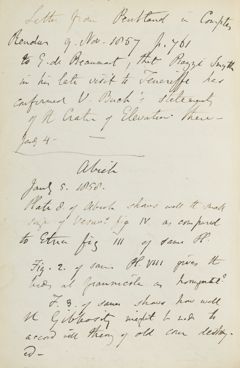 Letter from Pentland in Comptes
Rendus 9. Nov. 1857 p. 761
to E. de Beaumont, that Piazzi Smyth
in his late visit to Teneriffe has
confirmed V. Buch's statements
of the Crater of Elevation there—
Jany 4—
Abich
Jany 5. 1858.
Plate 8 of Abich shows well the small
size of Vesuvs. fig IV. as compared
to Etna fig III of same Pl.
Fig. 2. of same Pl VIII gives the
at
F. 3. of same shows how well
the Gibbosity might be said to
accord with theory of old cone destroy-
ed—